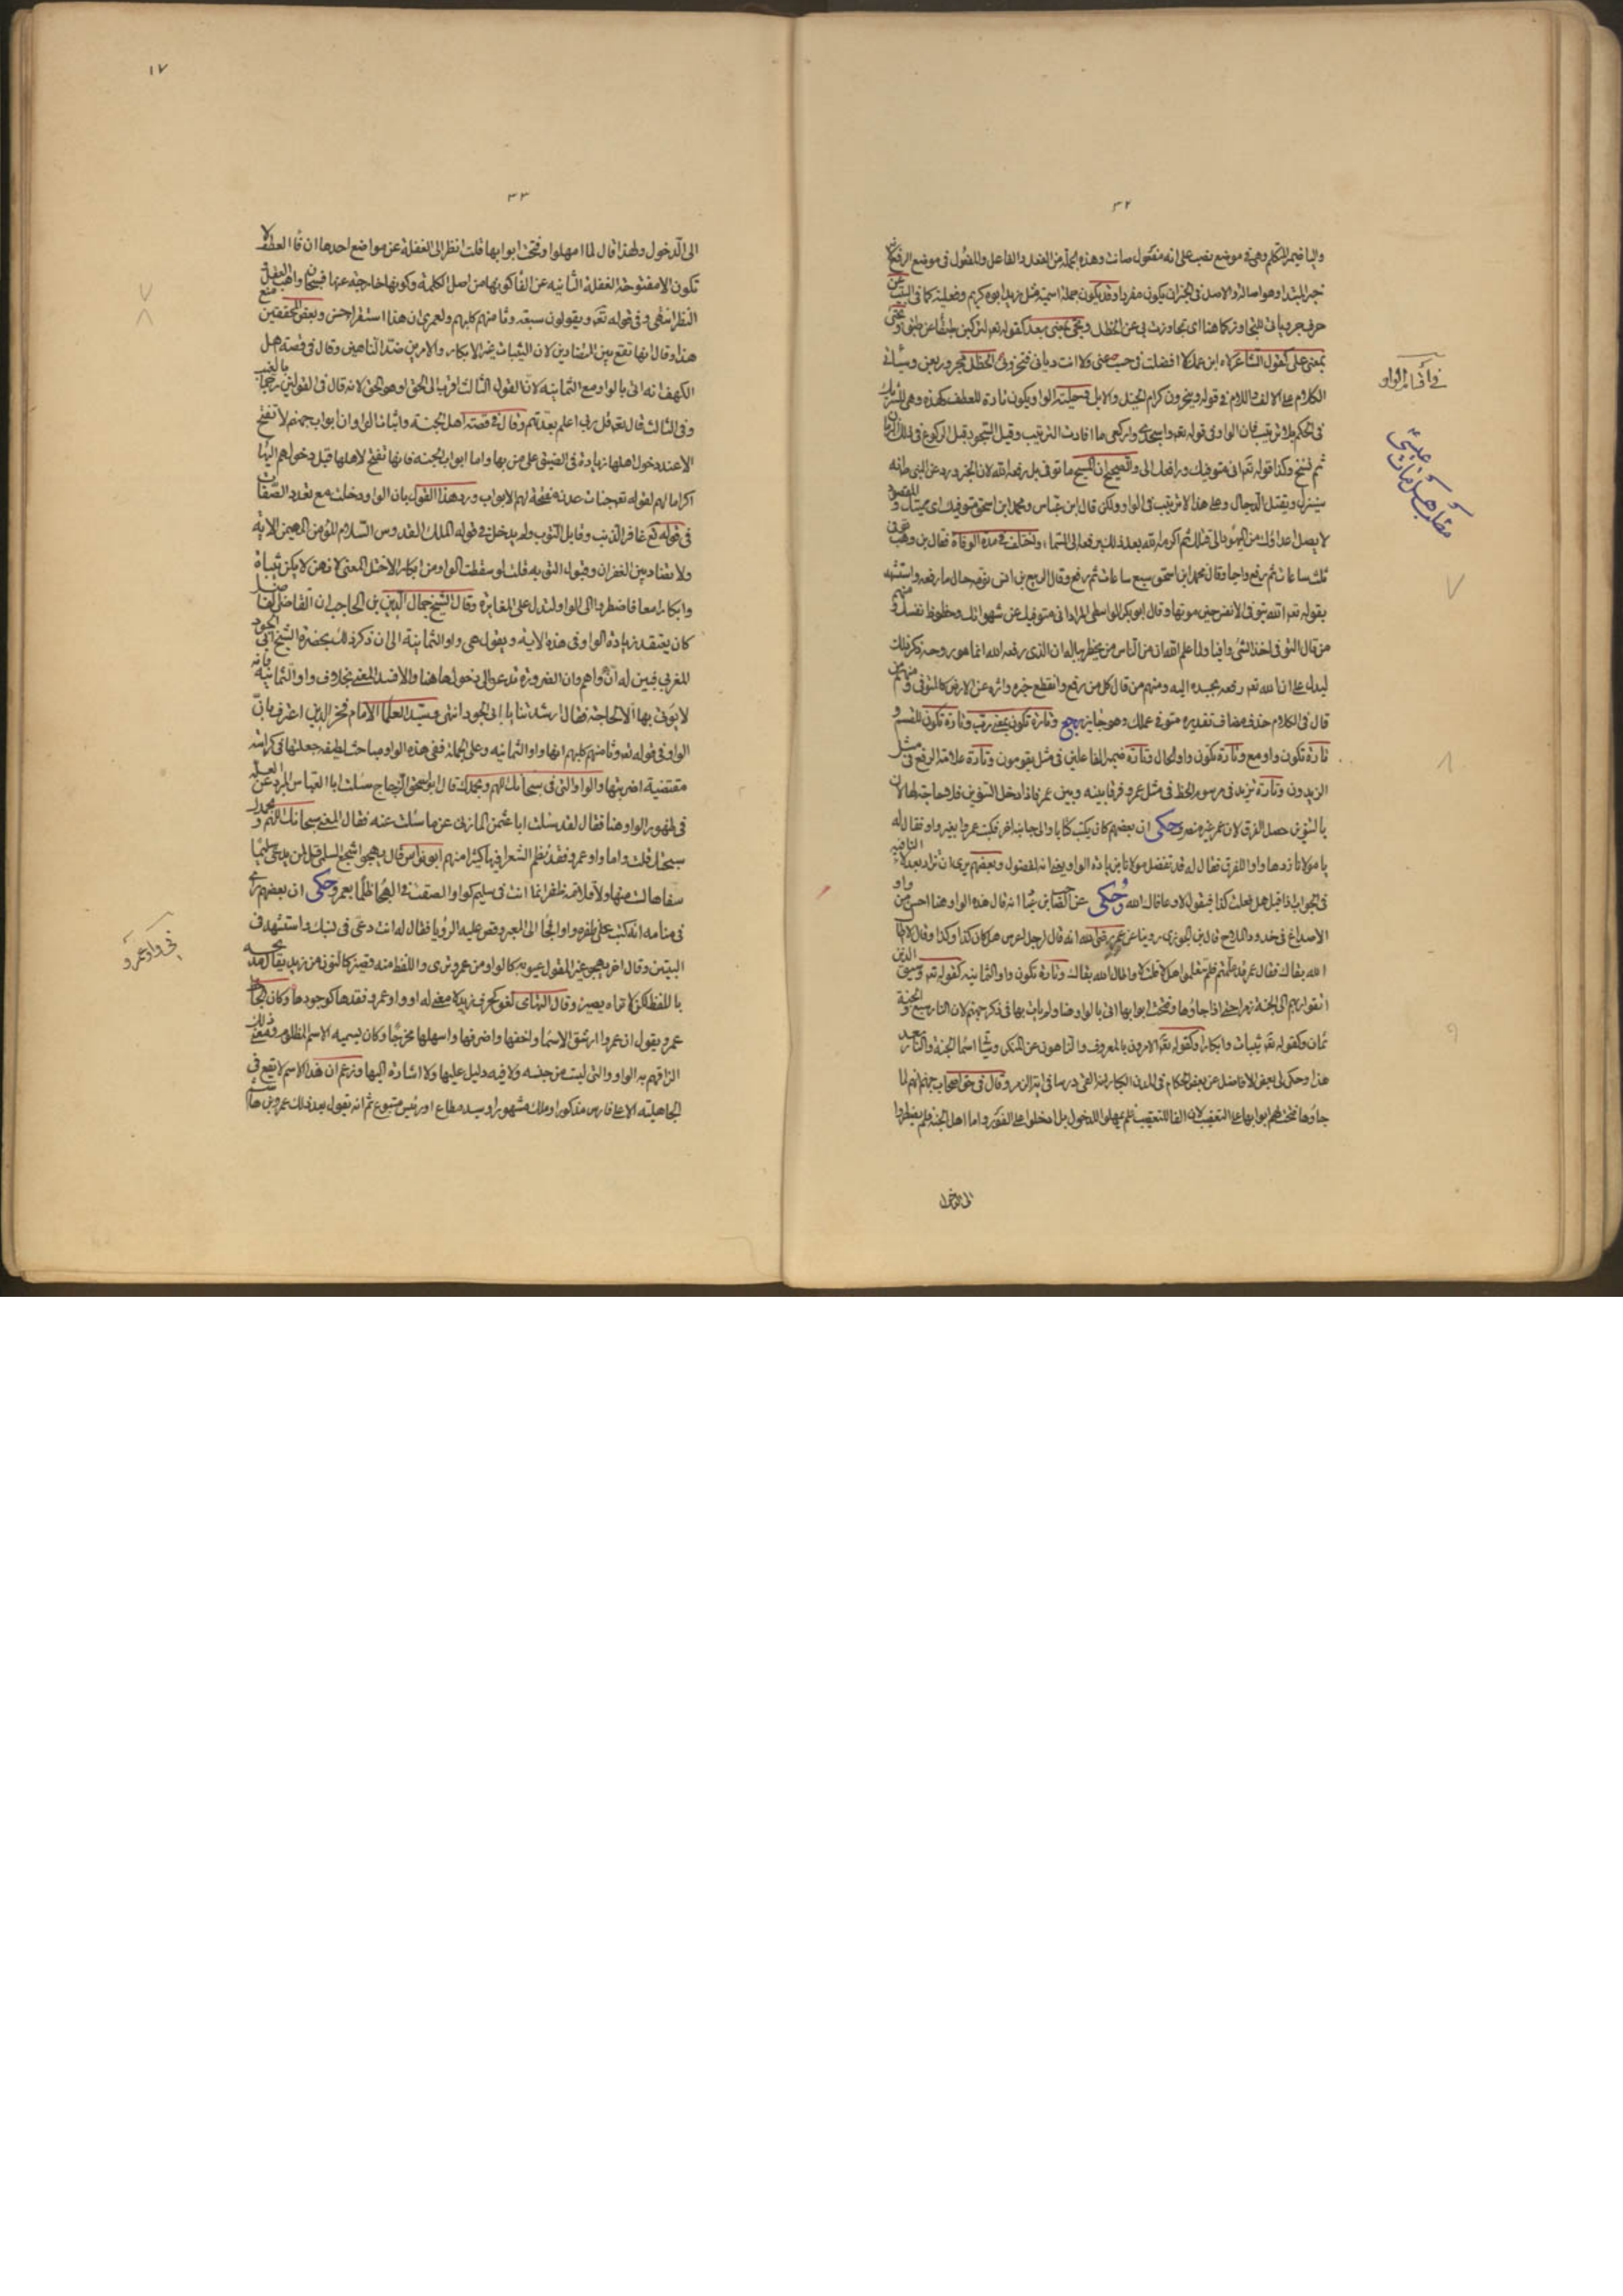 ٣٢
واليا ضمير المتكلم وهى فى موضع نصب على انه مفعول صانت وهذه الجملة من الفعل والفاعل والمفعول فى موضع الرفع
خبر المبتدا وهو اصالة والاصل فى الخبر ان يكون مفردا وقد يكون جملة اسمية مثل زيد ابوه كريم وفعلية كما فى البيت
حرف جر ياتى للتجاوز كما هنا اى تجاوزت بى عن الخطل وتجى بمعنى بعد كقوله تعالى لتركبن طبقا عن طبق
بمعنى على كقول الشاعر لاه ابن عمك لا افضلت فى حسب عنى ولا انت ديانى فتخزونى الخطل مجرور بعن وسيأتى
الكلام على الالف واللام فى قوله ويخرون كرام الخيل والابل وحلية الواو يكون تارة للعطف كهذه وهى للتشريك
فى الحكم بلا ترتيب فان الواو فى قوله تعالى واسجدى واركعى ما افادت الترتيب وقيل السجود قبل الركوع فى ذلك الزمان
ثم نسخ وكذا قوله تعالى انى متوفيك ورافعك الى والصحيح ان المسيح ما توفى بل رفعه الله لان الخبر ورد عن النبى
سينزل ويقتل الدجال وعلى هذا لا ترتيب فى الواو ولكن قال ابن عباس ومحمد ابن اسحق متوفيك اى مميتك
لا يصل اعداؤك من اليهود الى قتلك ثم اكرمه الله بعد ذلك برفعه الى السماء واختلف فى مدة الوفاة فقال بن وهب
ثلث ساعات ثم رفع واحيا وقال محمد ابن اسحق سبع ساعات ثم رفع وقال الربيع بن انس توفى حال ما رفعه واستشهد
بقوله تعالى الله يتوفى الانفس حين موتها وقال ابو بكر الواسطى المراد انى متوفيك عن شهواتك وحظوظ نفسك
من قال التوفى اخذ الشئ وافيا ولما علم الله ان من الناس من يخطر بباله ان الذى رفعه الله انما هو روحه ذكر ذلك
ليدل على ان الله تعالى رفعه بجسده اليه ومنهم من قال كل من رفع وانقطع خبره واثره عن الارض كالمتوفى ومنهم من
قال فى الكلام حذف مضاف تقديره متوفى عملك وهو جايز رجع وتارة تكون بمعنى رب وتارة تكون للقسم و
تارة تكون واو مع وتارة تكون واو الحال وتارة ضمير الفاعلين فى مثل يقومون وتارة علامة الرفع فى مثل
الزيدون وتارة تزيد فى مرسوم الخط فى مثل عمرو فرقا بينه وبين عمر فاذا دخل التنوين فلا حاجة لها لان
بالتنوين حصل الفرق لان عمر غير منصرف وحكى ان بعضهم كان يكتب كتابا والى جانبه اخر فكتب عمروا بغير واو فقال له
يا مولانا زدها واوا للفرق فقال له قد تفضل مولانا بزيادة الواو وبعضهم يرى ان تزاد بعد لا
فى الجواب اذا قيل هل فعلت كذا فيقول لا وعافاك الله وحكى عن الصاحب بن عباد انه قال هذه الواو هنا احسن من
الاصداغ فى خدود الملاح قال بن الجوزى روينا عن عمر رضى الله انه قال لرجل اعرس هل كان كذا وكذا وقال لا اطال
الله بقاك فقال عمر قد علمتم فلم تتعلموا هلا قلت لا واطال الله بقاك وتارة تكون واو الثمانية كقوله تعالى وسيق الذين
اتقوا ربهم الى الجنة زمرا حتى اذا جاؤها وفتحت ابوابها اتى بالواو هنا ولم يات بها فى ذكر جهنم لان النار سبع والجنة
ثمان وكقوله تعالى ثيبات وابكارا وكقوله تعالى الامرون بالمعروف والناهون عن المنكر
هذا وحكى لى بعض الافاضل عن بعض الحكام وقال فى حق اصحاب جهنم انهم لما
جاؤها فتحت لهم ابوابها على التعقيب لان الفا للتعقيب فلم يمهلوا للدخول بل ادخلوا على الفور واما اهل الجنة فلم يضطروا
الى الدخول
فى اقسام الواو
١٧
٣٣
الى الدخول ولهذا قال لما امهلوا وفتحت ابوابها قلت انظر الى الغفلة عن مواضع احدها ان فا العطف لا
تكون الا مفتوحة الغفلة الثانية عن الفا كونها من اصل الكلمة وكونها خارجة عنها فسبحان واهب العقل
النظر انتهى وفى قوله تعالى ويقولون سبعة وثامنهم كلبهم ولعمرى ان هذا استقرا حسن وبعض المحققين منع
هذا وقال انها تقع بين المتضادين لان الثيبات غير الابكار والامرين ضد الناهين وقال فى قصة اهل
الكهف انه اتى بالواو مع الثمانية لان القول الثالث اقرب الى الحق او هو الحق لانه قال فى القولين رجما بالغيب
وفى الثالث قال تعالى قل ربى اعلم بعدتهم وقال فى قصة اهل الجنة واثبات الواو ان ابواب جهنم لا تفتح
الا عند دخول اهلها زيادة فى الضيق على من بها واما ابواب الجنة فانها تفتح لاهلها قبل دخولهم اليها
اكراما لهم لقوله تعالى جنات عدن مفتحة لهم الابواب ورد هذا القول بان الواو دخلت مع تعدد الصفات
فى قوله تعالى غافر الذنب وقابل التوب ولم يدخل فى قوله الملك القدوس السلام المؤمن المهيمن الاية
ولا تضاد بين الغفران وقبول التوبة قلت لو سقطت الواو من ابكارا لاختل المعنى لانهن لا يكن ثيبات
وابكارا معا فاضطر الى الواو لتدل على المغايرة وقال الشيخ جمال الدين بن الحاجب ان القاضى الفاضل
كان يعتقد زيادة الواو فى هذه الاية ويقول هى واو الثمانية الى ان ذكر ذلك بحضرة الشيخ ابى الجود
المغربى فبين له انه واهم وان الضرورة تدعوا الى دخولها هنا والا فسد المعنى بخلاف واو الثمانية فانه
لا يؤتى بها الا لحاجة فقال ارشدتنا يا ابا الجود انتهى وسيد العلما الامام فخر الدين اعترف بان
الواو فى قوله تعالى وثامنهم كلبهم انها واو الثمانية وعلى الجملة ففى هذه الواو مباحث لطيفة جعلتها فى كراسة
مقتضبة اضربتها والواو التى فى سبحانك اللهم وبحمدك قال ابو اسحق الزجاج سئلت ابا العباس المبرد عن العلة
فى ظهور الواو هنا فقال لقد سئلت ابا عثمن المازنى عن ما سئلت عنه فقال المعنى سبحانك اللهم وبحمدك
سبحتك قلت واما واو عمرو فقد نظم الشعرا فيها كثيرا منهم ابو نواس قال يهجو اشجع السلمى قل لمن يدعى سليما
سفاها لست منها ولا قلامة ظفر انما انت فى سليم كواو الصقت فى الهجا ظلما بعمرو وحكى ان بعضهم راى
فى منامه انه كتب على ظفره واوا فجا الى المعبر وقص عليه الرؤيا فقال له انت دعى فى نسبك واستشهد فى
البيتين وقال اخر يهجو
باللفظ لكن لا تراه يصير وقال التهامى لغو كحرف زيد لا معنى له او واو عمرو فقدها كوجودها وكان الجاحظ
عمرو يقول ان عمروا ارشق الاسما واخفها واضرفها واسهلها مخرجا وكان يسميه الاسم المظلوم ومعنى ذلك
الزاقهم به الواو والتى ليست من جنسه ولا فيه دليل عليها ولا اشارة اليها وزعم ان هذا الاسم لا يقع فى
الجاهلية الا على فارس مذكور او ملك مشهور او سيد مطاع او رئيس متبوع ثم انه يقول بعد ذلك عمرو بن هاشم
فى واو عمرو